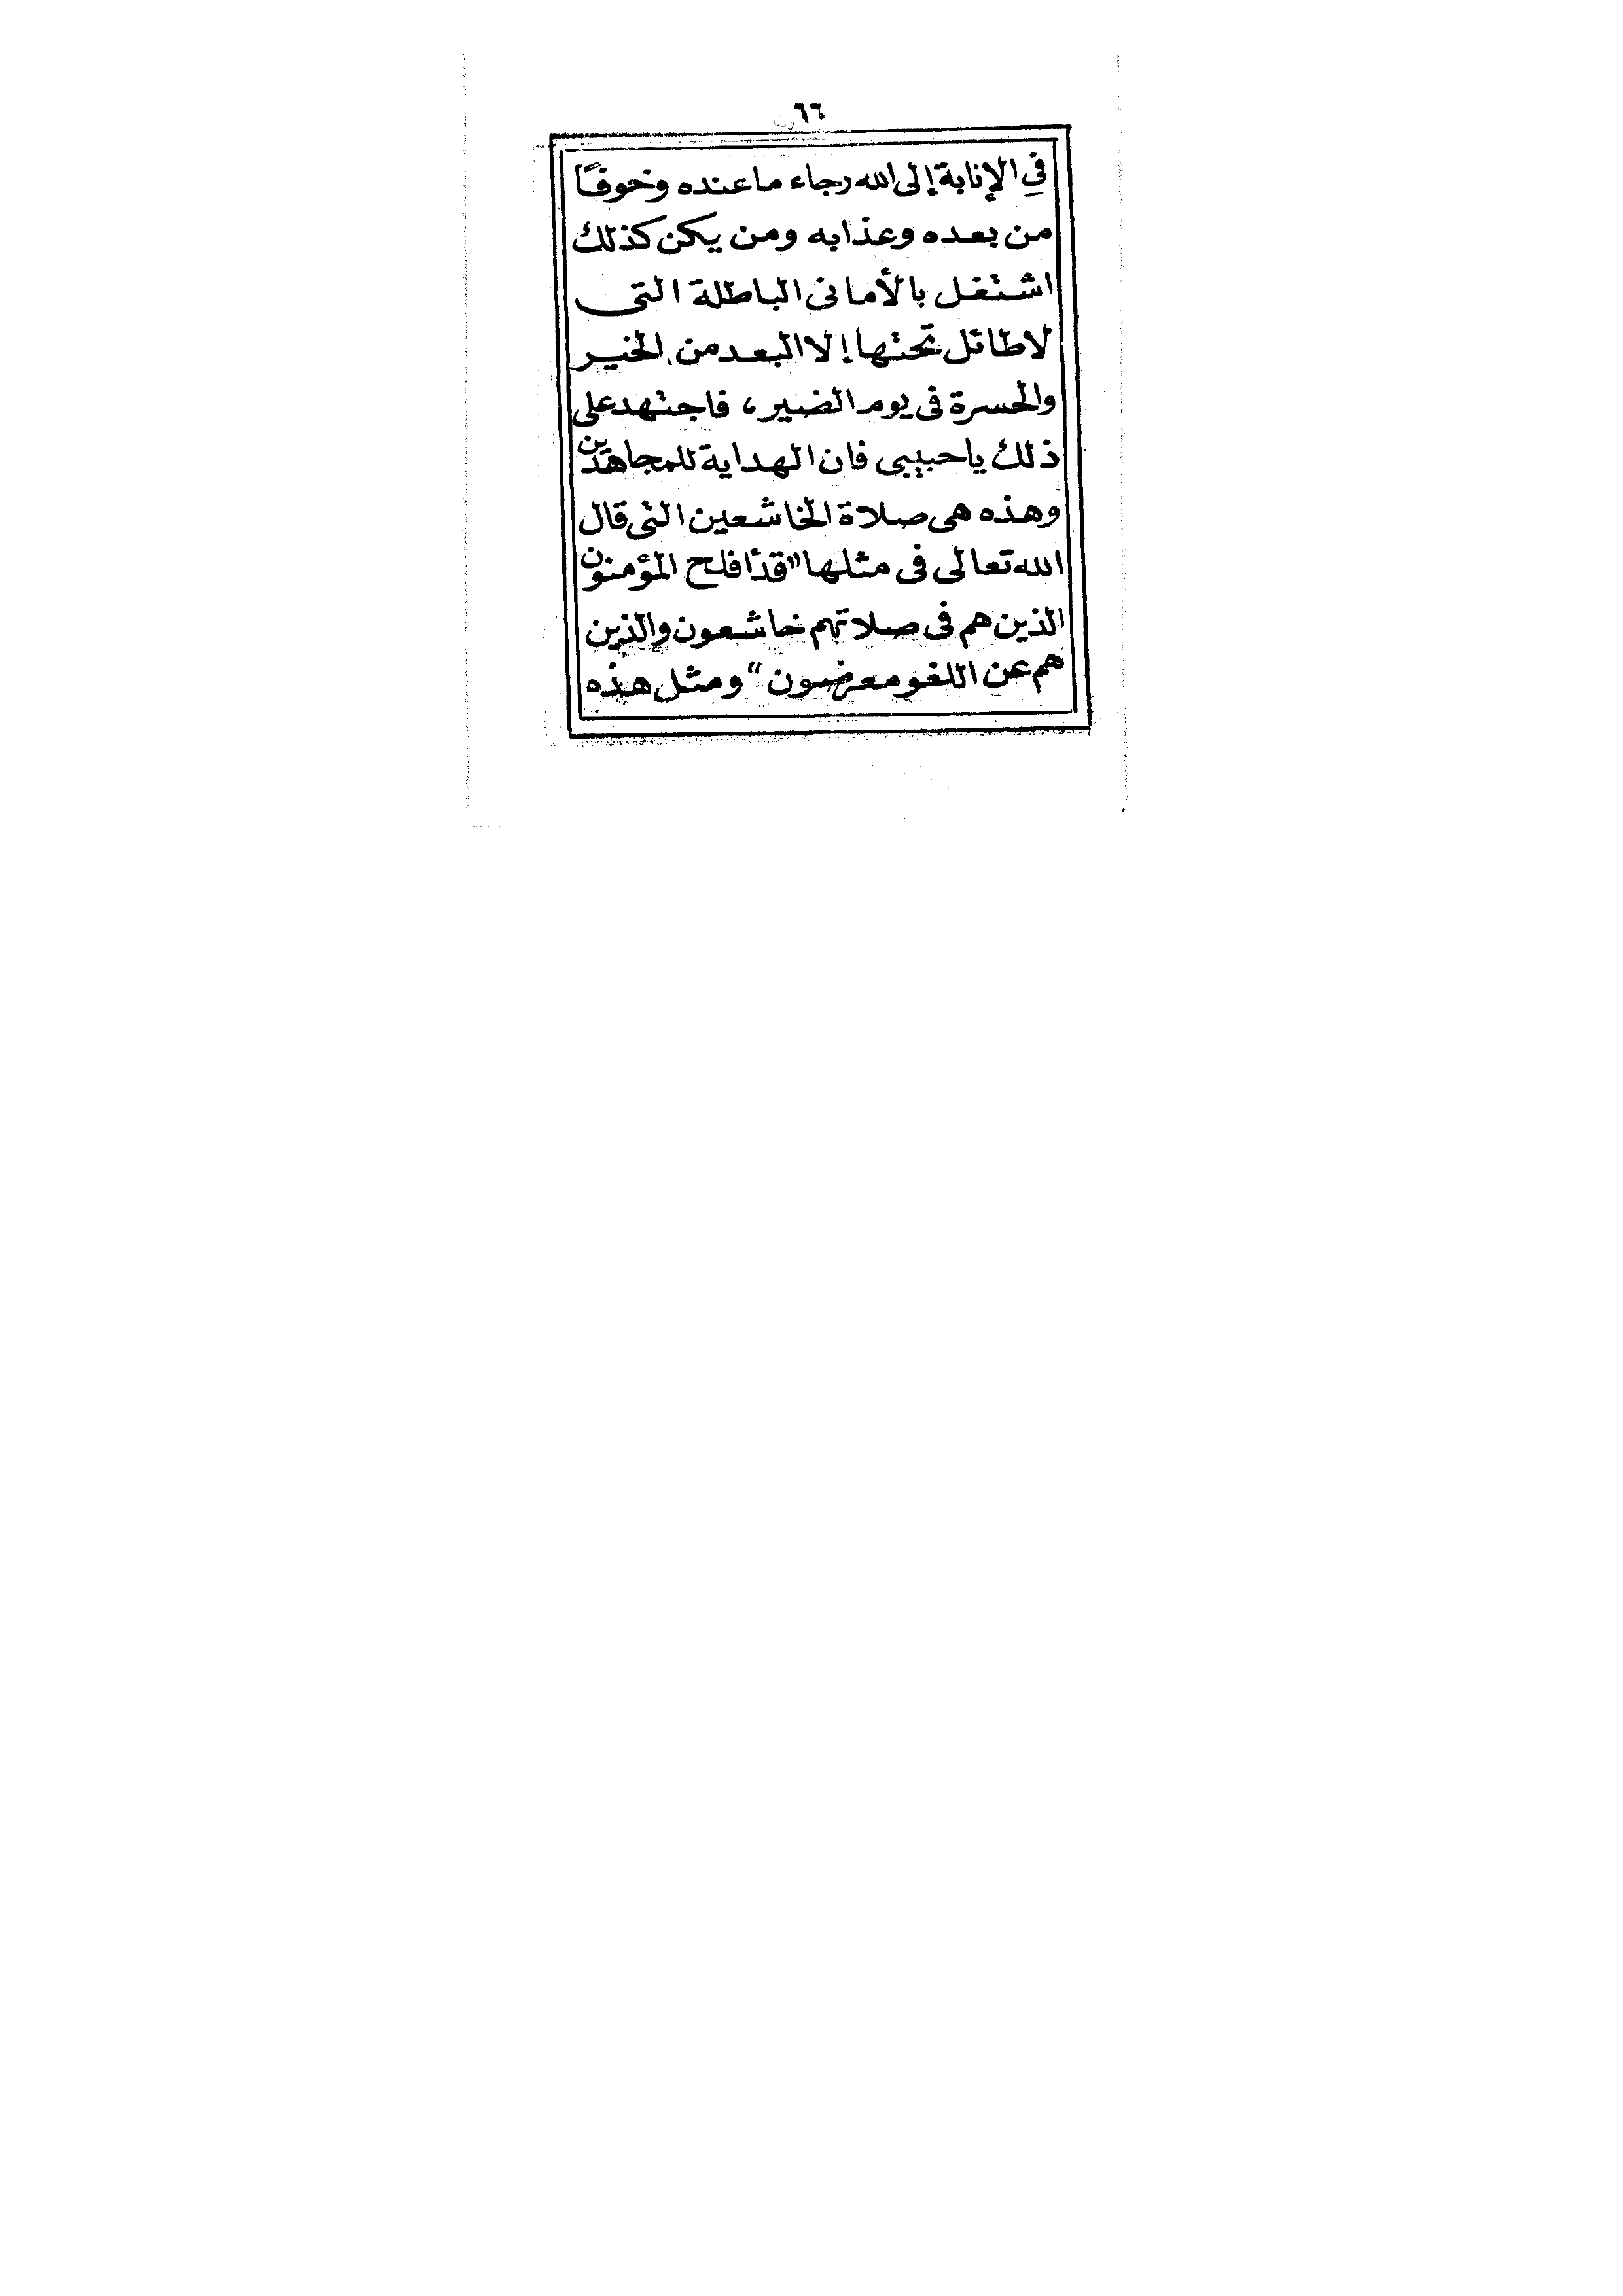 ٦٦
فِي الإنابة إلى الله رجاء ما عنده وخوفًا
من بعده وعذابه ومن يكن كذلك
اشتغل بالأمانى الباطلة التى
لا طائل تحتها إلا البعد من الخير
والحسرة فى يوم الضير، فاجتهد على
ذلك ياحبيبى فان الهداية للمجاهدين
وهذه هى صلاة الخاشعين التى قال
الله تعالى فى مثلها "قد أفلح المؤمنون
الذين هم فى صلاتهم خاشعون والذين
هم عن اللغو معرضون" ومثل هذه